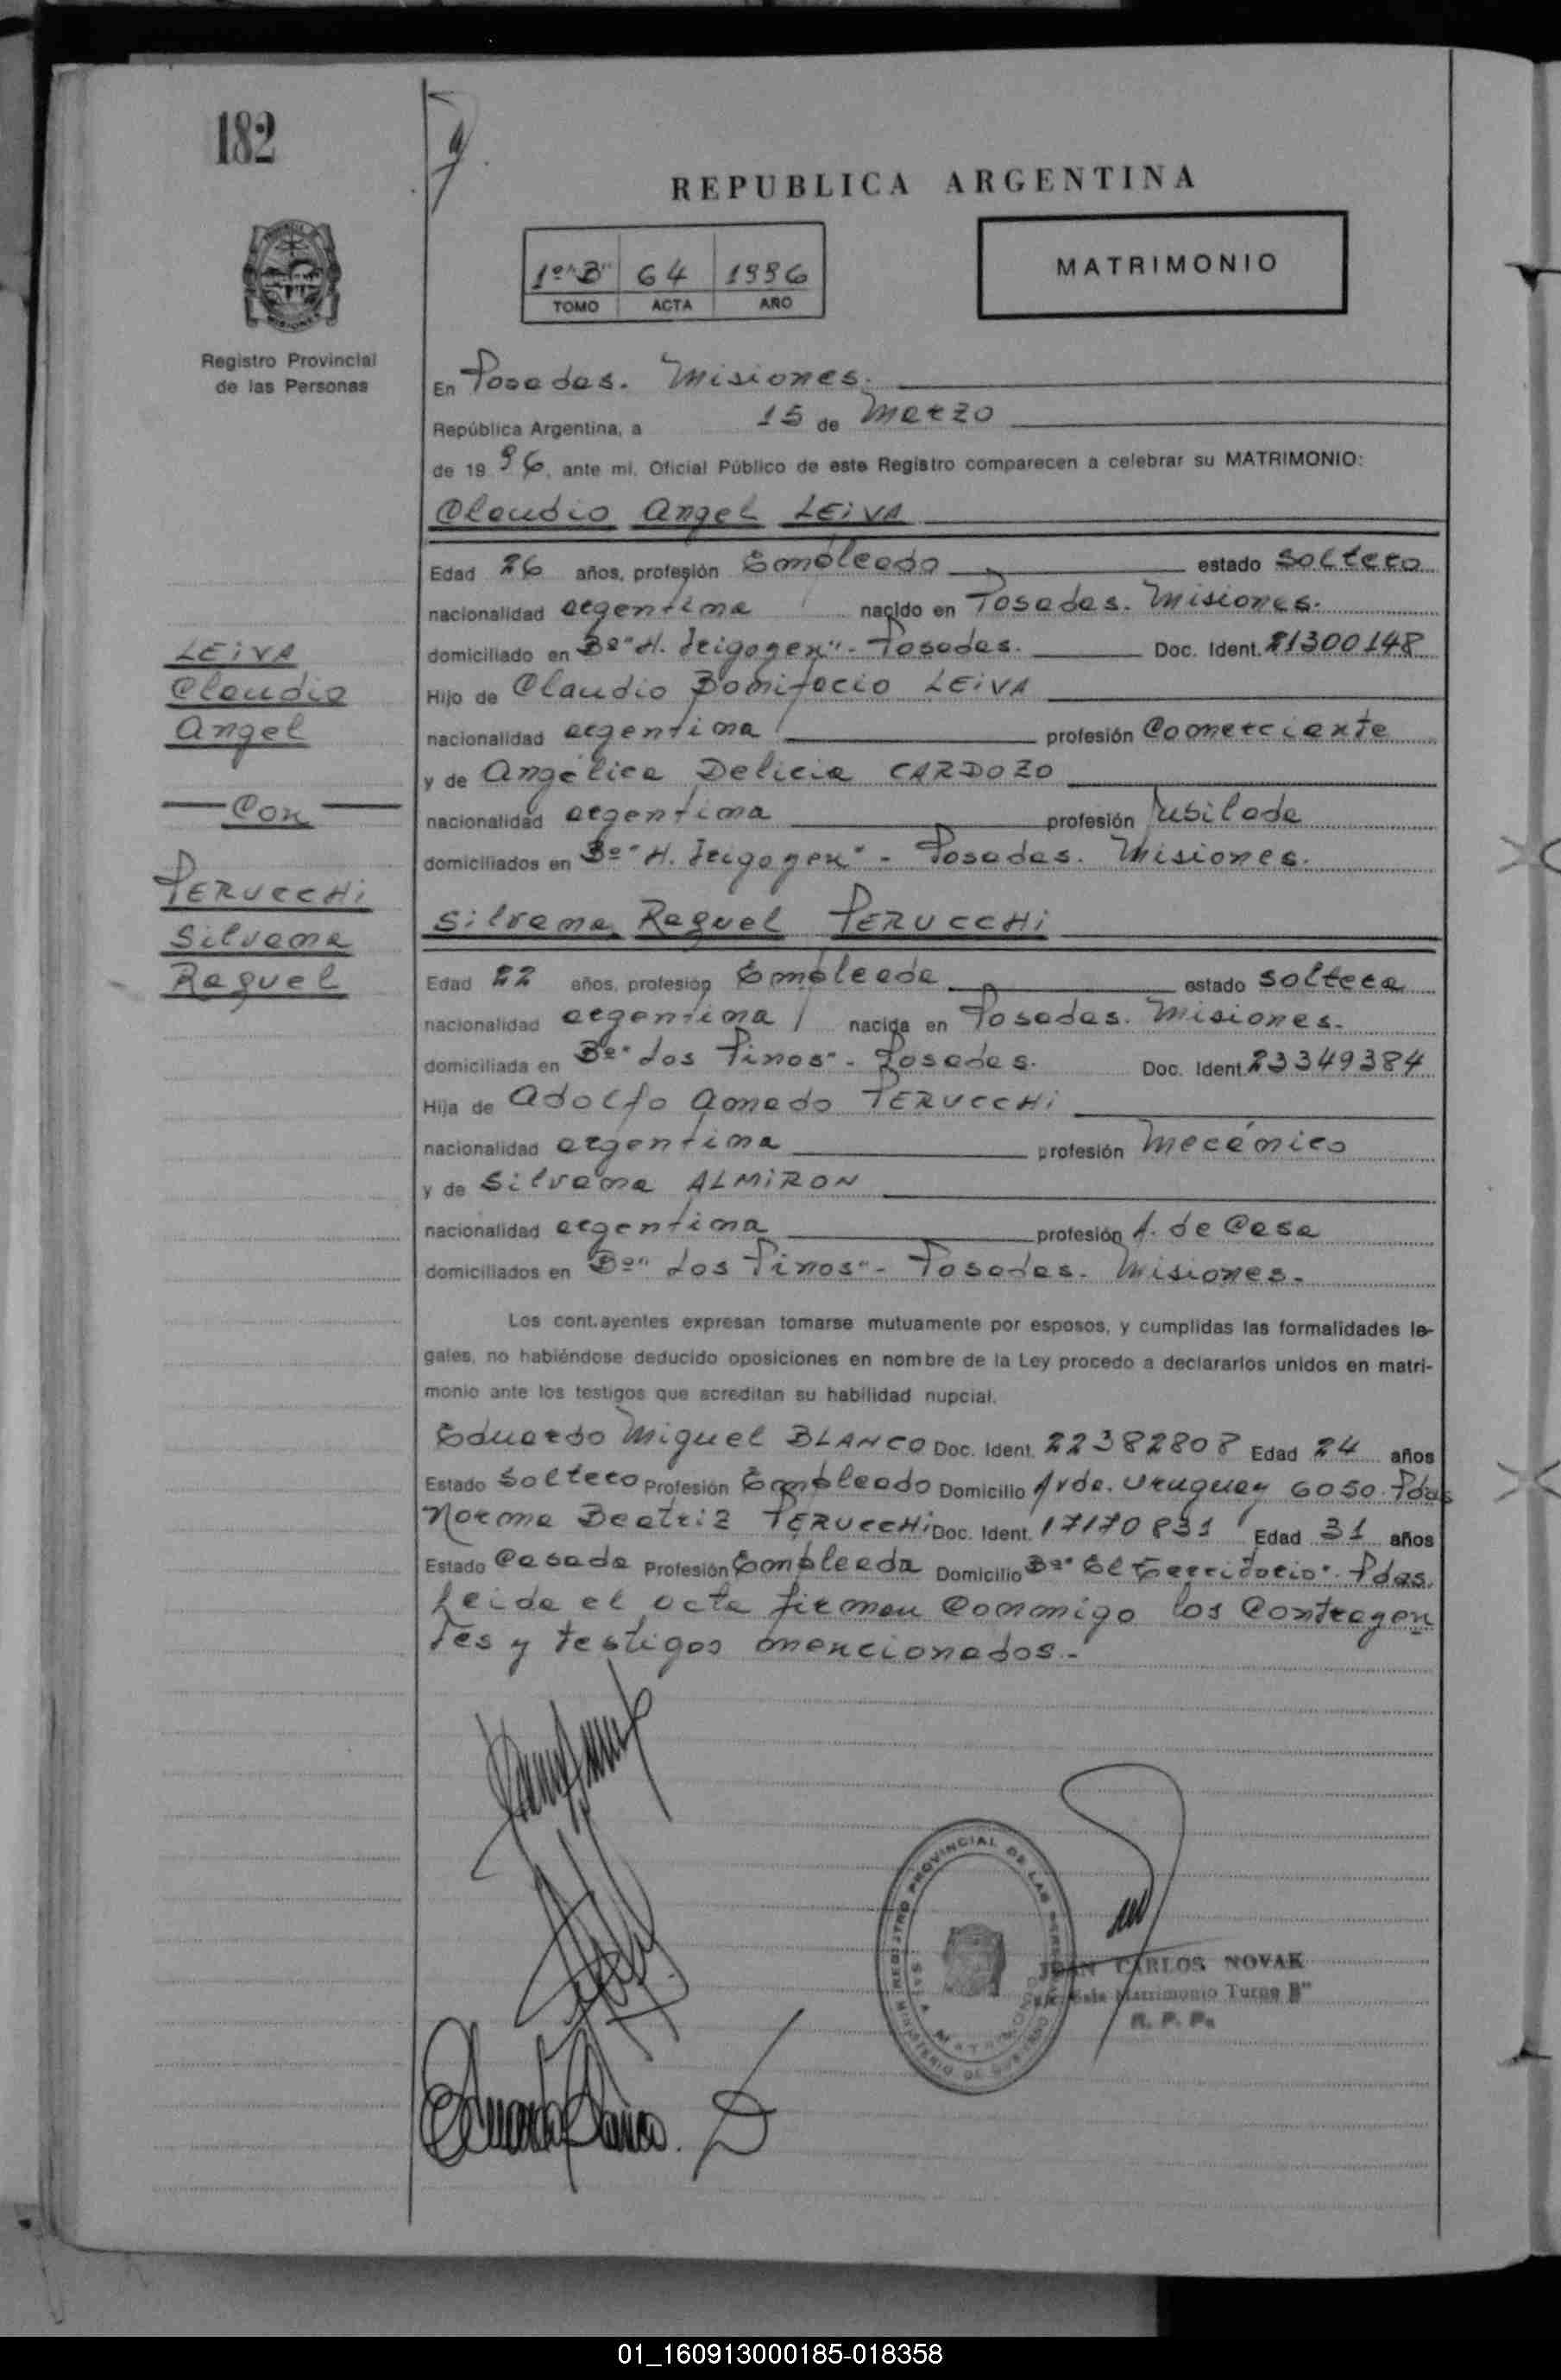 182
REPUBLICA ARGENTINA
1º "B" 64 1996
TOMO ACTA AÑO
MATRIMONIO
Registro Provincial
de las Personas
En Posadas. Misiones.
República Argentina, a 15 de Marzo
de 1996, ante mi, Oficial Público de este Registro comparecen a celebrar su MATRIMONIO:
Claudio Angel LEIVA
Edad 26 años, profesión Empleado estado soltero
nacionalidad argentina nacido en Posadas. Misiones.
domiciliado en Bº "H. Irigoyen" - Posadas. Doc. Ident. 21300148
Hijo de Claudio Bonifacio LEIVA
nacionalidad argentina profesión Comerciante
y de Angélica Delicia CARDOZO
nacionalidad argentina profesión Jubilada
domiciliados en Bº "H. Irigoyen" - Posadas. Misiones.
Silvana Raquel PERUCCHI
Edad 22 años, profesión Empleada estado soltera
nacionalidad argentina nacida en Posadas. Misiones.
domiciliada en Bº "Los Pinos" - Posadas. Doc. Ident. 23349384
Hija de Adolfo Amado PERUCCHI
nacionalidad argentina profesión Mecánico
y de Silvana ALMIRON
nacionalidad argentina profesión A. de Casa
domiciliados en Bº "Los Pinos" - Posadas. Misiones.
Los cont.ayentes expresan tomarse mutuamente por esposos, y cumplidas las formalidades le-
gales, no habiéndose deducido oposiciones en nombre de la Ley procedo a declararlos unidos en matri-
monio ante los testigos que acreditan su habilidad nupcial.
Eduardo Miguel BLANCO Doc. Ident. 22382808 Edad 24 años
Estado Soltero Profesión Empleado Domicilio Avda. Uruguay 6050. Pdas
Norma Beatriz PERUCCHI Doc. Ident. 17170831 Edad 31 años
Estado Casada Profesión Empleada Domicilio Bº "El Territorio". Pdas.
Leida el acta firman conmigo los contrayen
tes y testigos mencionados.-
LEIVA
Claudio
Angel
Con
PERUCCHI
Silvana
Raquel
Eduardo Blanco.
REGISTRO PROVINCIAL DE LAS PERSONAS
MINISTERIO DE GOBIERNO
SALA MATRIMONIO
JUAN CARLOS NOVAK
Sala Matrimonio Turno B"
R. P. P.
01_160913000185-018358